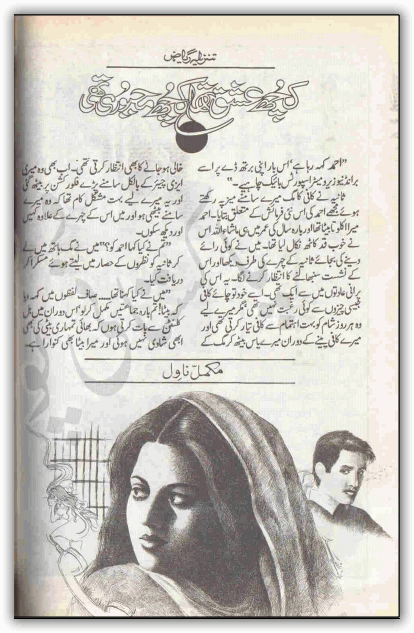 تنزیلہ ریاض
کچھ عشق تھا کچھ مجبوری تھی
”احمد کہہ رہا ہے‘ اس بار اپنی برتھ ڈے پر اسے
برانڈ نیو زیرو میٹر اسپورٹس بائیک چاہیے۔“
ثانیہ نے کافی کا مگ میرے سامنے میز پر رکھتے
ہوئے مجھے احمد کی اس نئی فرمائش کے متعلق بتایا۔ احمد
میرا اکلوتا بیٹا تھا اور بارہ سال کی عمر میں ہی ماشاءاللہ اس
نے خوب قد کاٹھ نکال لیا تھا۔ میں نے کوئی رائے
دینے کی بجائے ثانیہ کے چہرے کی طرف دیکھا اور اس
کے نشست سنبھالنے کا انتظار کرنے لگا۔ یہ اس کی
پرانی عادتوں میں سے ایک تھی۔ اسے خود تو چائے کافی
جیسی چیزوں سے کوئی رغبت نہیں تھی مگر میرے لیے
وہ ہر روز شام کو بہت اہتمام سے کافی تیار کرتی تھی اور
میرے کافی پینے کے دوران میرے پاس بیٹھ کر مگ کے
خالی ہو جانے کا بھی انتظار کرتی تھی۔ اب بھی وہ میری
ایزی چیئر کے بالکل سامنے پڑے فلور کشن پر بیٹھ گئی
اور یہ میرے لیے بہت مشکل کام تھا کہ وہ میرے
سامنے بیٹھی ہو اور میں اس کے چہرے کے علاوہ کہیں
اور دیکھ سکوں۔
”تم نے کیا کہا احمد کو؟“ میں نے مگ ہاتھ میں لے
کر ثانیہ کو نظروں کے حصار میں لیتے ہوئے مسکرا کر
دریافت کیا۔
”میں نے کیا کہنا تھا..... صاف لفظوں میں کہہ دیا
کہ بیٹا تم بارہ جماعتیں مکمل کر لو‘ اس دوران میں دل
سے بات کرتی ہوں کہ بھائی تمہاری بیٹی کی بھی
ابھی شادی نہیں ہوئی اور میرا بیٹا بھی کنوارا ہے۔
مکمل ناول